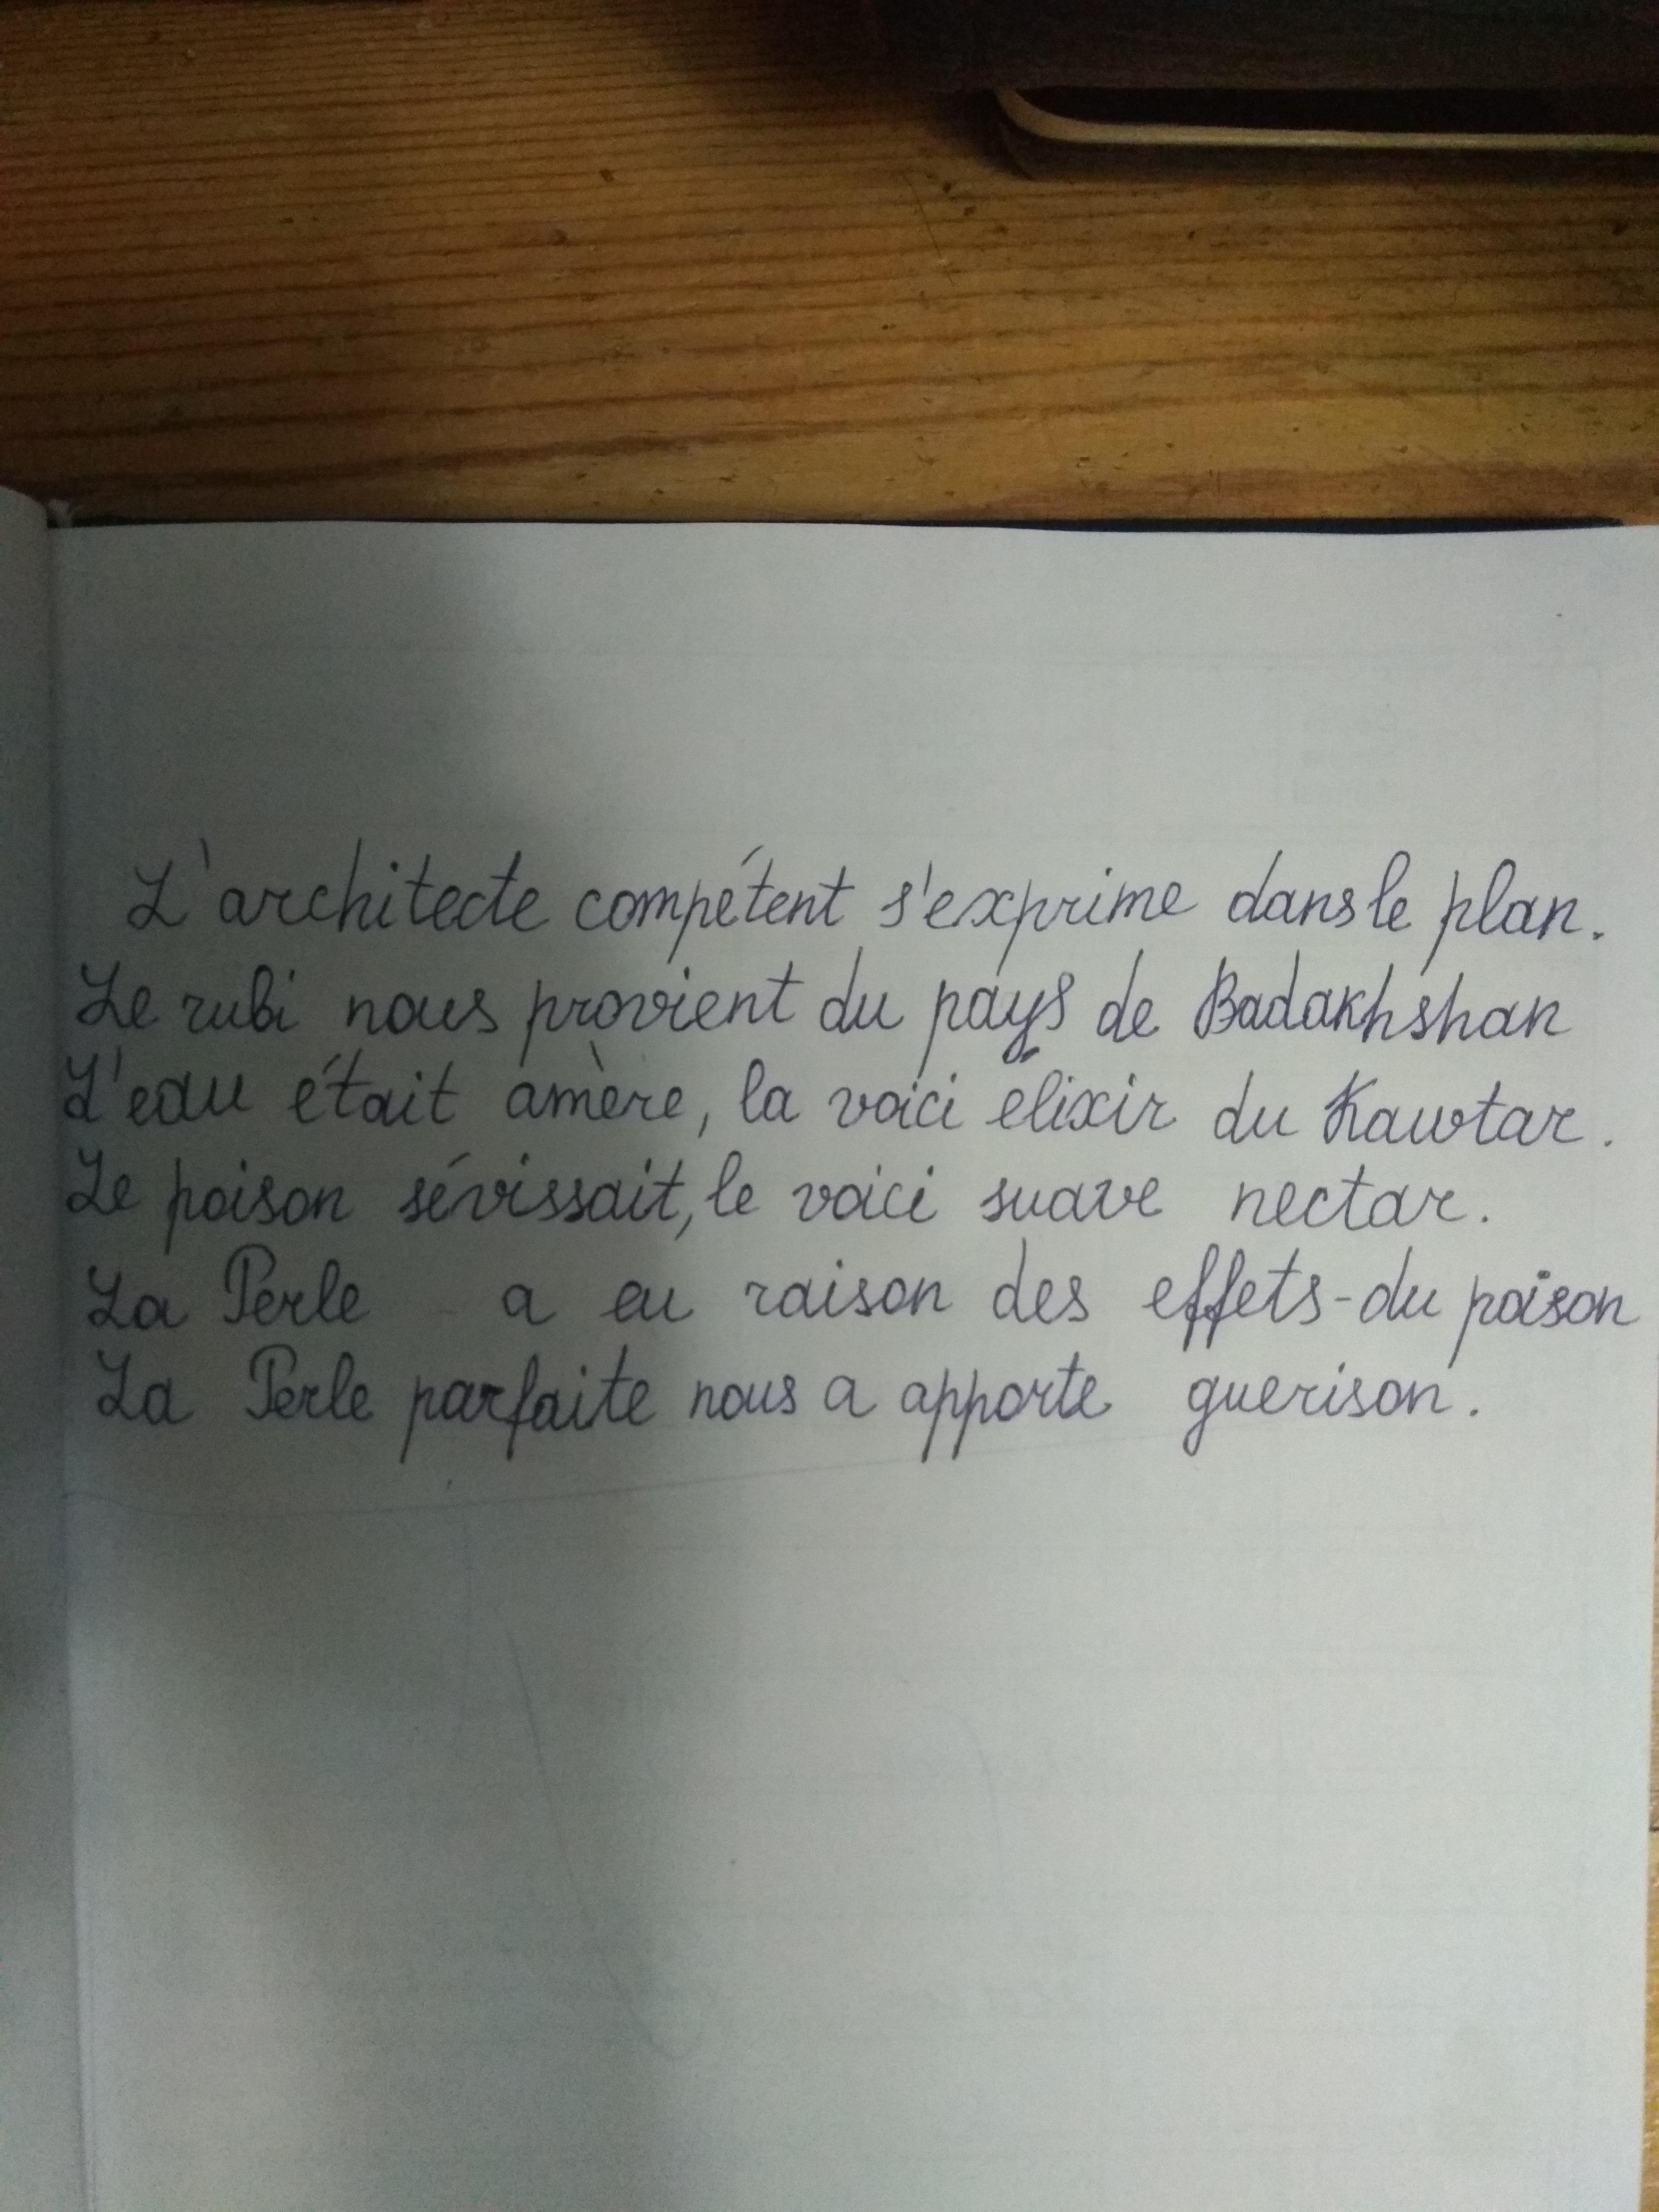 L'architecte compétent s'exprime dans le plan.
Le rubi nous provient du pays de Badakhshan
L'eau était amère, la voici elixir du Kawtar.
Le poison sévissait, le voici suave nectar.
La Perle a eu raison des effets-du poison
La Perle parfaite nous a apporte guerison.